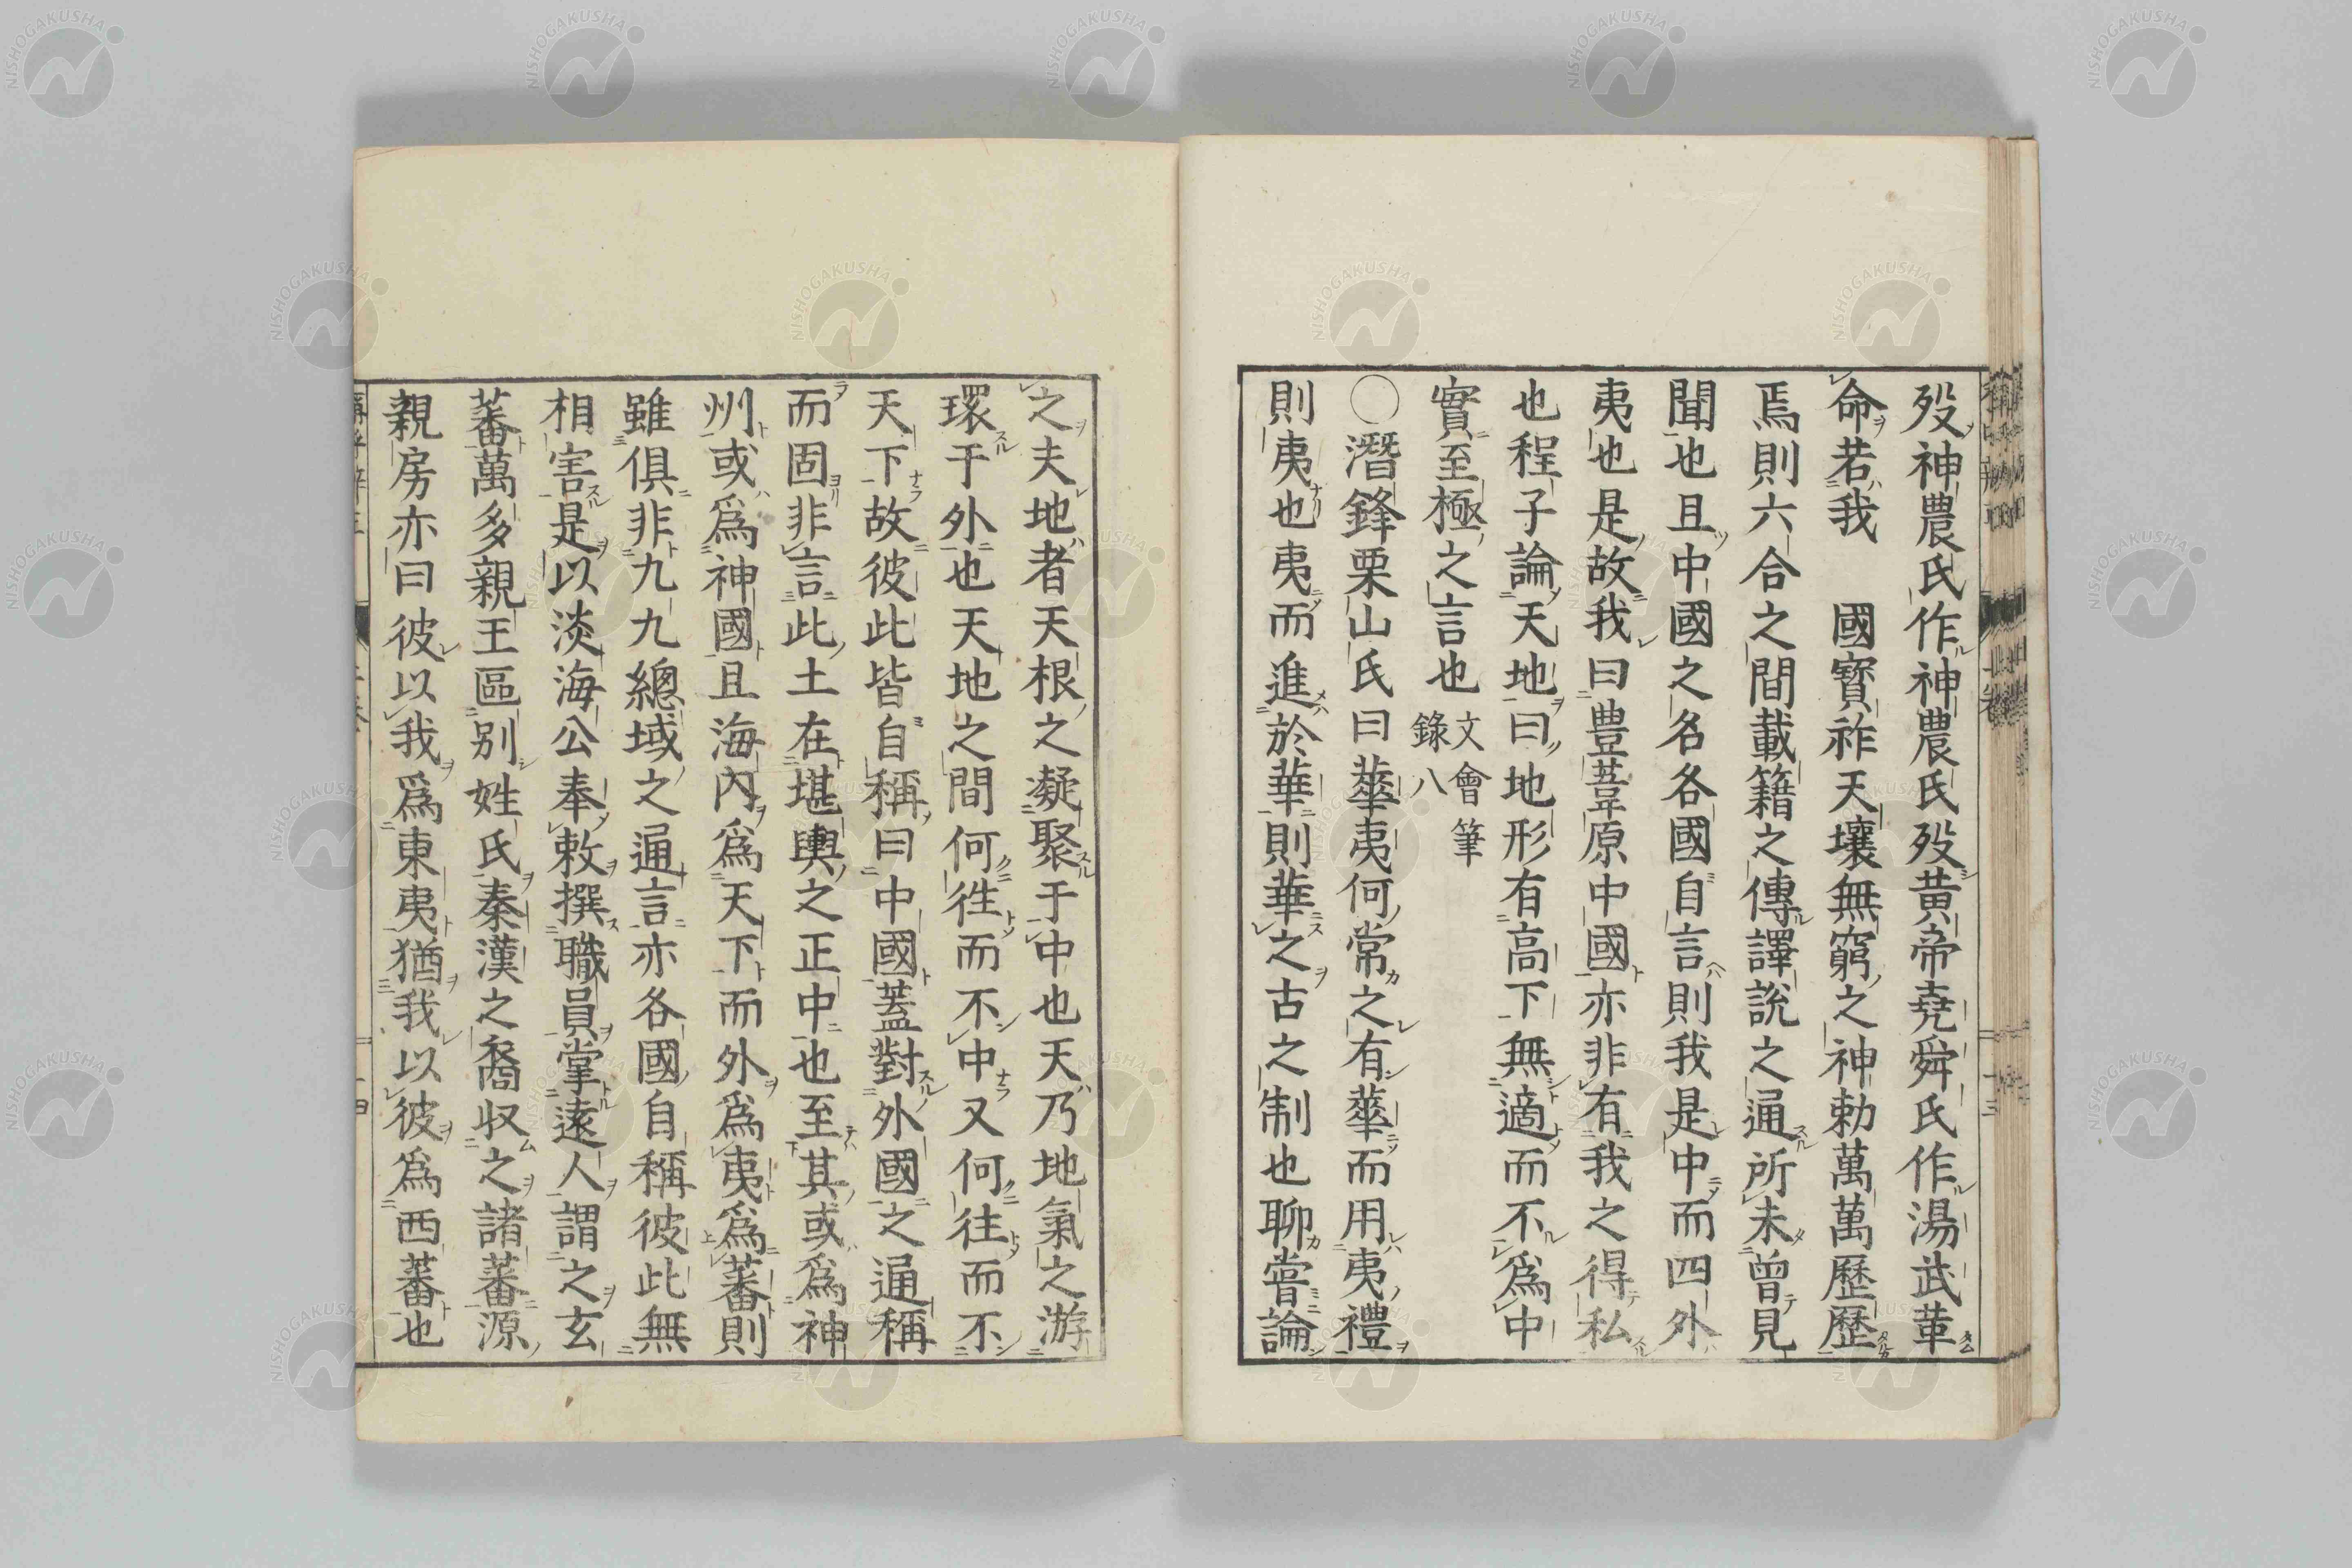 歿神農氏作神農氏歿黃帝堯舜氏作湯武革
命若我　國寳祚天壤無窮之神勅萬萬歷歷
焉則六合之間載籍之傳譯說之通所未曾見
聞也且中國之名各國自言則我是中而四外
夷也是故我曰豊葦原中國亦非有我之得私
也程子論天地曰地形有高下無適而不爲中
實至極之言也文會筆
錄八
〇潛鋒栗山氏曰華夷何常之有華而用夷禮
則夷也夷而進於華則華之古之制也聊嘗論
之夫地者天根之凝聚于中也天乃地氣之游
環于外也天地之間何徃而不中又何往而不
天下故彼此皆自稱曰中國蓋對外國之通稱
而固非言此土在堪輿之正中也至其或爲神
州或爲神國且海內爲天下而外爲夷爲蕃則
雖俱非九九總域之通言亦各國自稱彼此無
相害是以淡海公奉敕撰職員掌遠人謂之玄
蕃萬多親王區別姓氏秦漢之裔収之諸蕃源
親房亦曰彼以我爲東夷猶我以彼爲西蕃也
NISHOGAKUSHA